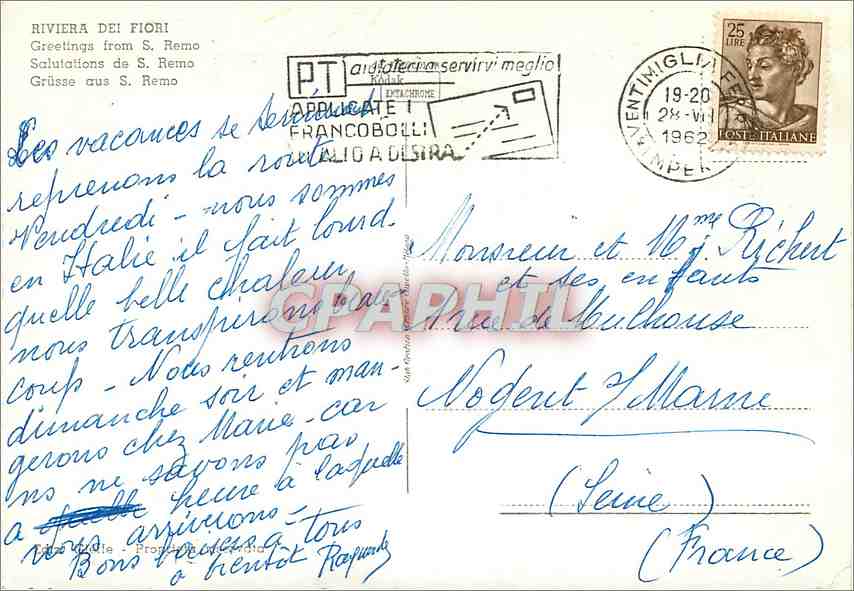 RIVIERA DEI FIORI
Greetings from S. Remo
Salutations de S. Remo
Grüsse aus S. Remo
PT aiutateci a servirvi meglio
Kodak
EKTACHROME
APPLICATE I
FRANCOBOLLI
IN ALTO A DESTRA
VENTIMIGLIA FERR
19-20
28-VII
1962
IMPER
25
LIRE
POSTE ITALIANE
Les vacances se terminent
reprenons la route
Vendredi - nous sommes
en Italie il fait lourd -
quelle belle chaleur
nous transpirons beau
coup - Nous rentrons
dimanche soir et man-
gerons chez Marie - car
ns ne savons pas
a quelle heure à laquelle
nous arriverons -
Bons baisers à tous
à bientôt
Monsieur et Mme J. Richert
et ses enfants
rue de Mulhouse
Nogent s/ Marne
(Seine)
(France)
CPAPHIL